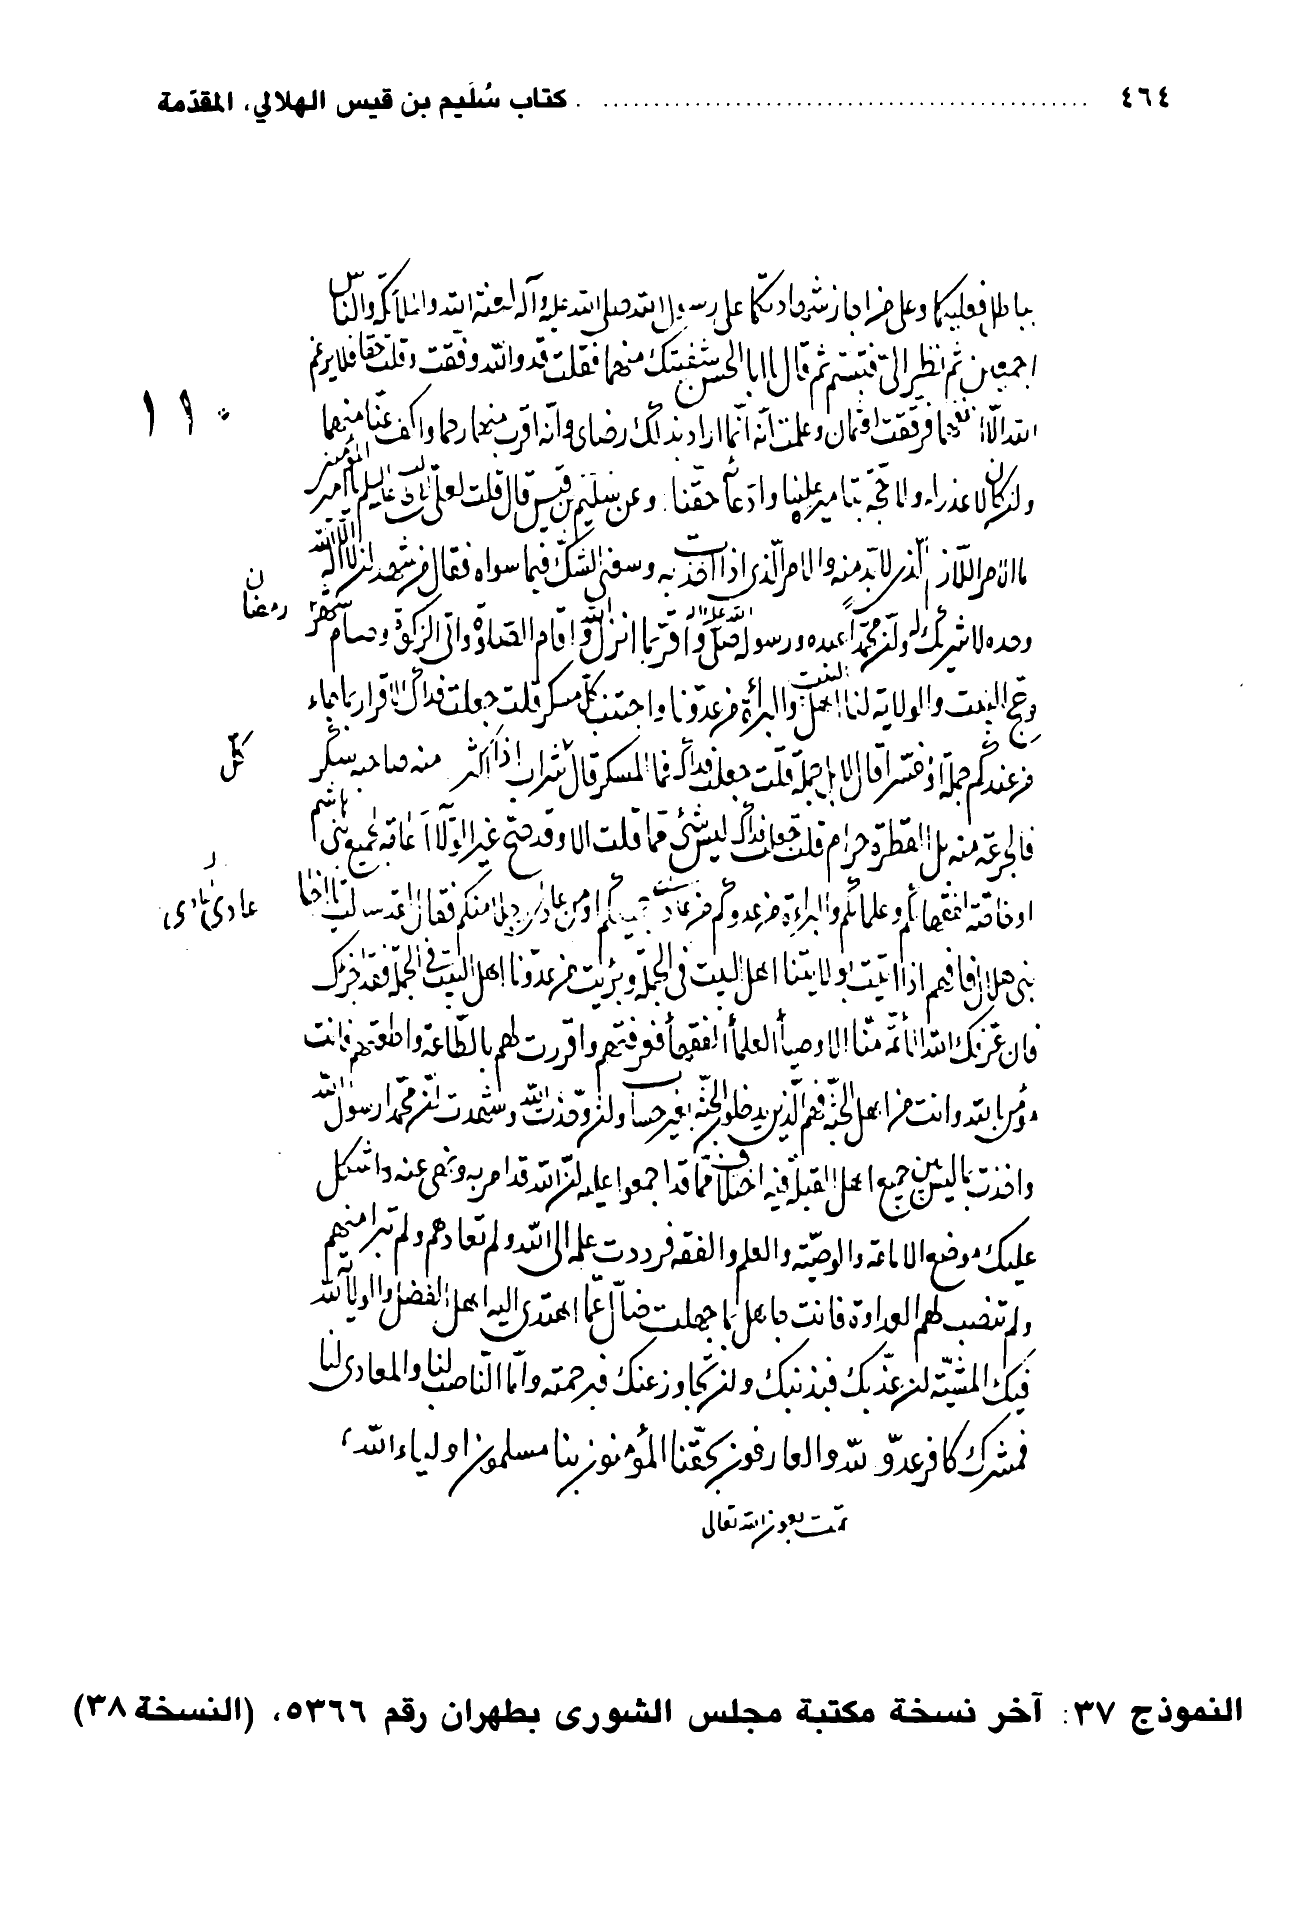 ٤٦٤ ........ كتاب سُلَيم بن قيس الهلالي، المقدّمة
بباطل فعليكما وعلى من اجاز شهادتكما على رسول الله صلى الله عليه وآله لعنة الله والملائكة والناس
اجمعين ثم نظر الىّ فتبسّم ثم قال يا ابا الحسن شفيتك منهما فقلت قد والله وفّقت وقلت حقا فلا يرغم
الله الّا انفهما فرققت لعثمان وعلمت أنه انّما اراد بذلك رضاى وأنه اقرب منهما رحما واكف عنّا منهما
وان كان لا عذر له ولا حجّة بتاميره علينا وادعائه حقّنا. وعن سليم بن قيس قال قلت لعلىّ عليه السلم يا امير المؤمنين
ما الامر اللازم الذى لابدّ منه والامر الّذى اذا اخذت به وسعنى الشكّ فيما سواه فقال من شهد ان لا اله الا الله
وحده لا شريك له وان محمّداً عبده ورسوله صلى الله عليه واله واقرّ بما انزل الله واقام الصلوة واتى الزكوة وصام شهر رمضان
وحجّ البيت والولاية لنا اهل البيت والبراءة من عدوّنا واجتنب كلّ مسكر قلت جعلت فداك الاقرار بما جاء
من عندكم جملة او مفسّرا قال لا بل جملة قلت جعلت فداك فما المسكر قال كل شراب اذا اكثر منه صاحبه سكر
فالجرعة منه بل القطرة حرام قلت جعلت فداك ليس شئ ممّا قلت الا وقد صحّ غير الولاية اعامة لجميع بنى هاشم
او خاصّة لفقهائكم وعلمائكم والبراءة من عدوكم من عادى جميعكم او من عادى رجلا منكم فقال لقد سالت يا اخا
بنى هلال فافهم اذا اتيت بولايتنا اهل البيت فى الجملة وبرئت من عدوّنا اهل البيت فى الجملة فقد اجزك
فان عرّفك الله الائمّة منّا الاوصياء العلماء الفقهاء فعرفتهم واقررت لهم بالطّاعة واطعتهم فانت
مؤمن بالله وانت من اهل الجنّة فهم الّذين يدخلون الجنّة بغير حساب وان وحّدت الله وشهدت انّ محمّدا رسول الله
واخذت بما ليس بين جميع اهل القبلة فيه اختلاف ممّا قد اجمعوا عليه انّ الله قد امر به ونهى عنه واشكل
عليك موضع الامامة والوصيّة والعلم والفقه فرددت علمه الى الله ولم تعادهم ولم تبرا منهم
ولم تنصب لهم العداوة فانت جاهل بما جهلت ضالّ عمّا اهتدى اليه اهل الفضل والولاية لله
فيك المشيّة ان عذّبك فبذنبك وان تجاوز عنك فبرحمته وامّا النّاصب لنا والمعادى لنا
فمشرك كافر عدوّ لله والعارفون بحقّنا المؤمنون بنا مسلمون اولياء الله،
تمّت بعون الله تعالى
النموذج ٣٧: آخر نسخة مكتبة مجلس الشورى بطهران رقم ٥٣٦٦، (النسخة ٣٨)